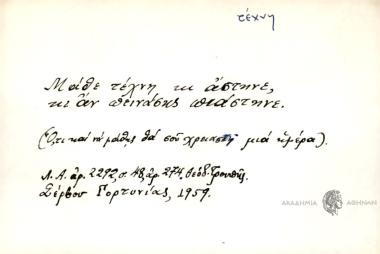 τέχνη
Μάθε τέχνη κι ἄστηνε,
κι ἄν πεινάσῃς πιάστηνε.
(Ὅ,τι καί νά μάθῃς θά σοῦ χρειαστῇ μιά ἡμέρα).
Λ. Α. ἀρ. 2292, σ. 48, ἀρ. 274. Θεόδ. Τρουπῆς.
Σέρβου Γορτυνίας, 1959.
ΑΚΑΔΗΜΙΑ ΑΘΗΝΩΝ